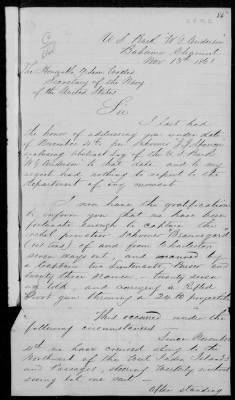 U.S. Bark "W.G. Anderson"
Bahama Channel
Nov 13th 1861
The Honorable Gideon Welles
Secretary of the Navy
of the United States.
Sir
I last had
the honor of addressing you under date
of November per Schooner
enclosing abstract log of the U.S. Bark
W G Anderson to that date and to my
regret had nothing to report to the
department of any moment.
I now have the gratification
to inform you that we have been
fortunate enough to capture the
rebel privateer Schooner "Beauregard"
(101 tons) of and from Charleston
seven days out, and manned by
a Captain two Lieutenants Purser and
twenty three seamen twenty seven
all told and carrying a Rifled
Pivot gun throwing a 24 lb projectile
This occurred under the
following circumstances
Since November
we have cruised along to the
Northeast of the Islands
and Passages, steering Easterly without
seeing but one sail
After standing